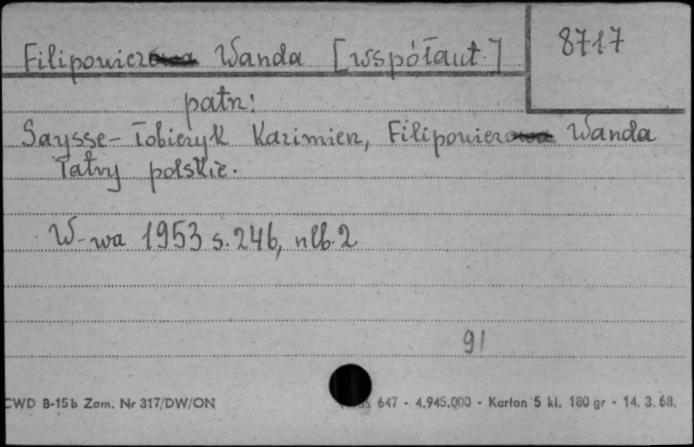 Filipowicz Wanda [współaut.]
8717
patrz:
Saysse-Tobiczyk Kazimierz, Filipowicz Wanda
Tatry polskie.
W-wa 1953 s. 246, nlb. 2
91
CWD B-15b Zam. Nr 317/DW/ON
647 - 4.945.000 - Karton 5 kl. 180 gr - 14. 3. 68.